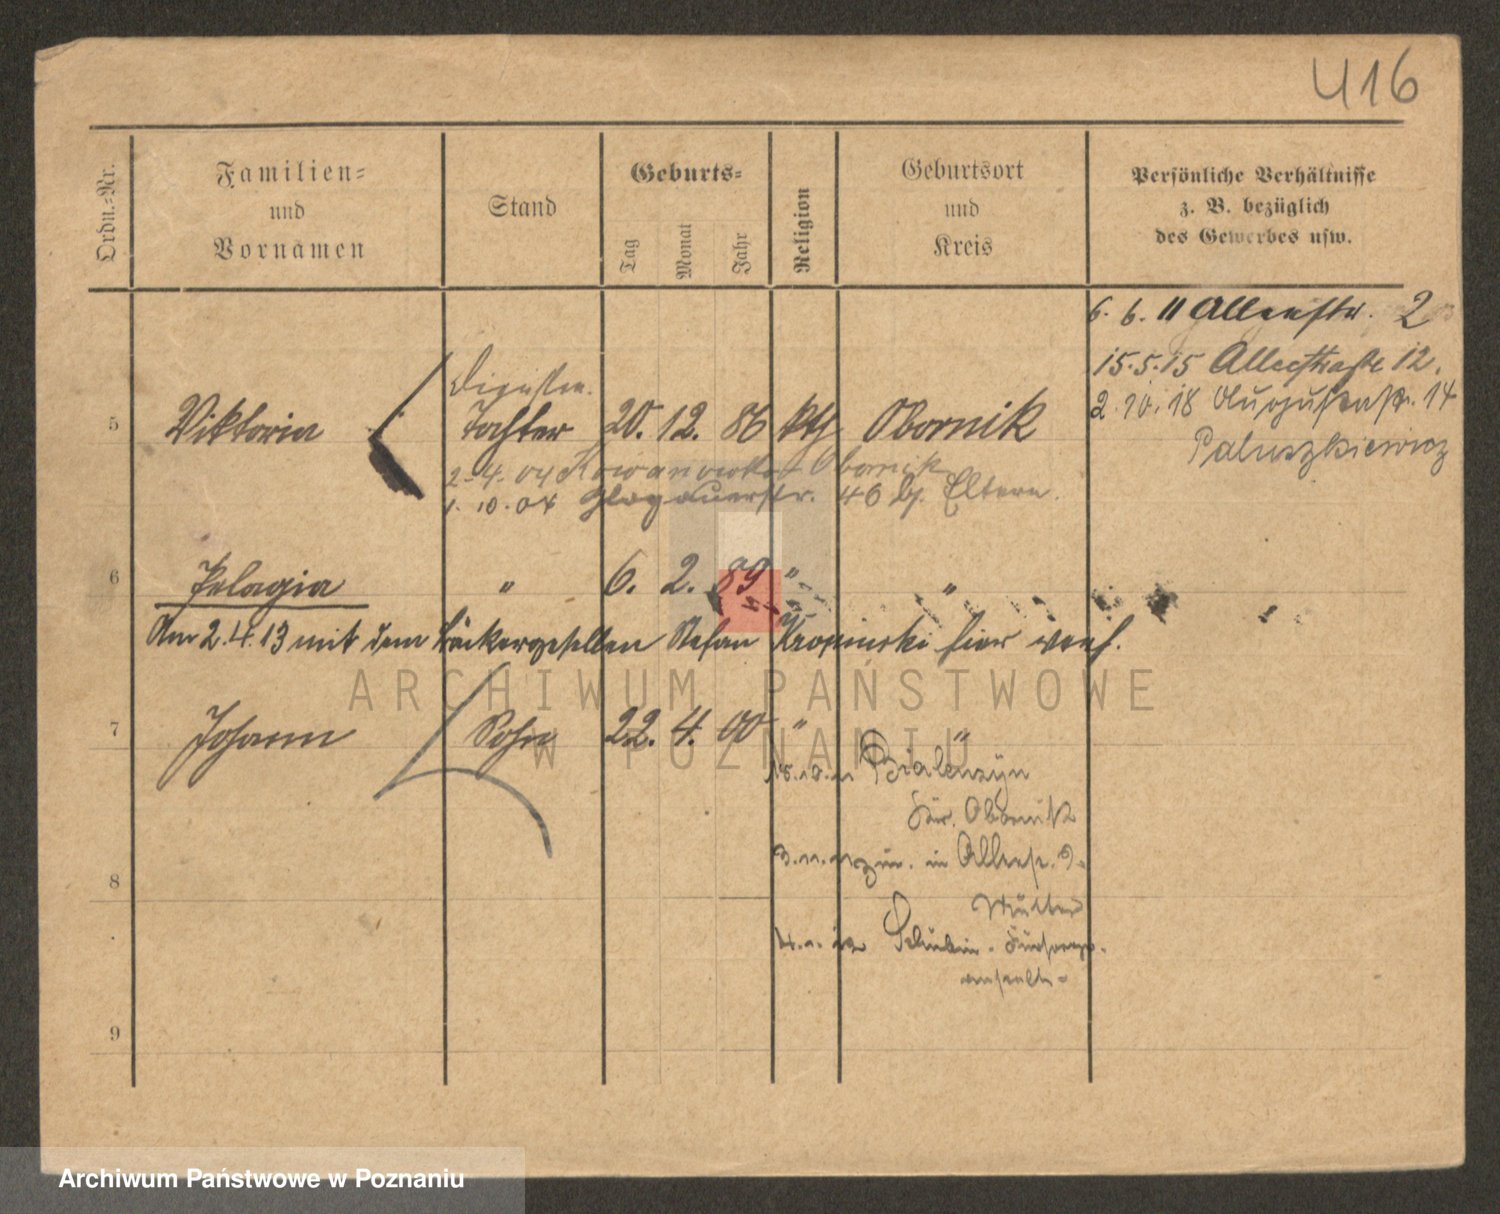 416
Ordn.-Nr.
Familien-
und
Vornamen
Stand
Geburts-
Tag
Monat
Jahr
Religion
Geburtsort
und
Kreis
Persönliche Verhältnisse
z. B. bezüglich
des Gewerbes usw.
6. 6. 11 Alleestr. 2
15.5.15 Alleestraße 12.
2.10.18 Augustastr. 14
Paluszkiewicz
5 Viktoria Tochter 20. 12. 86 kth Obornik
2.4.04 Kowanowko Obornik
1.10.04 Glogauerstr. 46 bj. Eltern.
6 Pelagia " 6. 2. 89 " "
Am 2.4.13 mit dem Bäckergesellen Stefan Kropinski hier verh.
7 Johann Sohn 22. 4. 00 " "
Bialenzyn
Kr. Obornik
zur. in Alleestr. 2
Mutter
8
Schubin. Fürsorge-
anstalt
9
ARCHIWUM PAŃSTWOWE
W POZNANIU
Archiwum Państwowe w Poznaniu